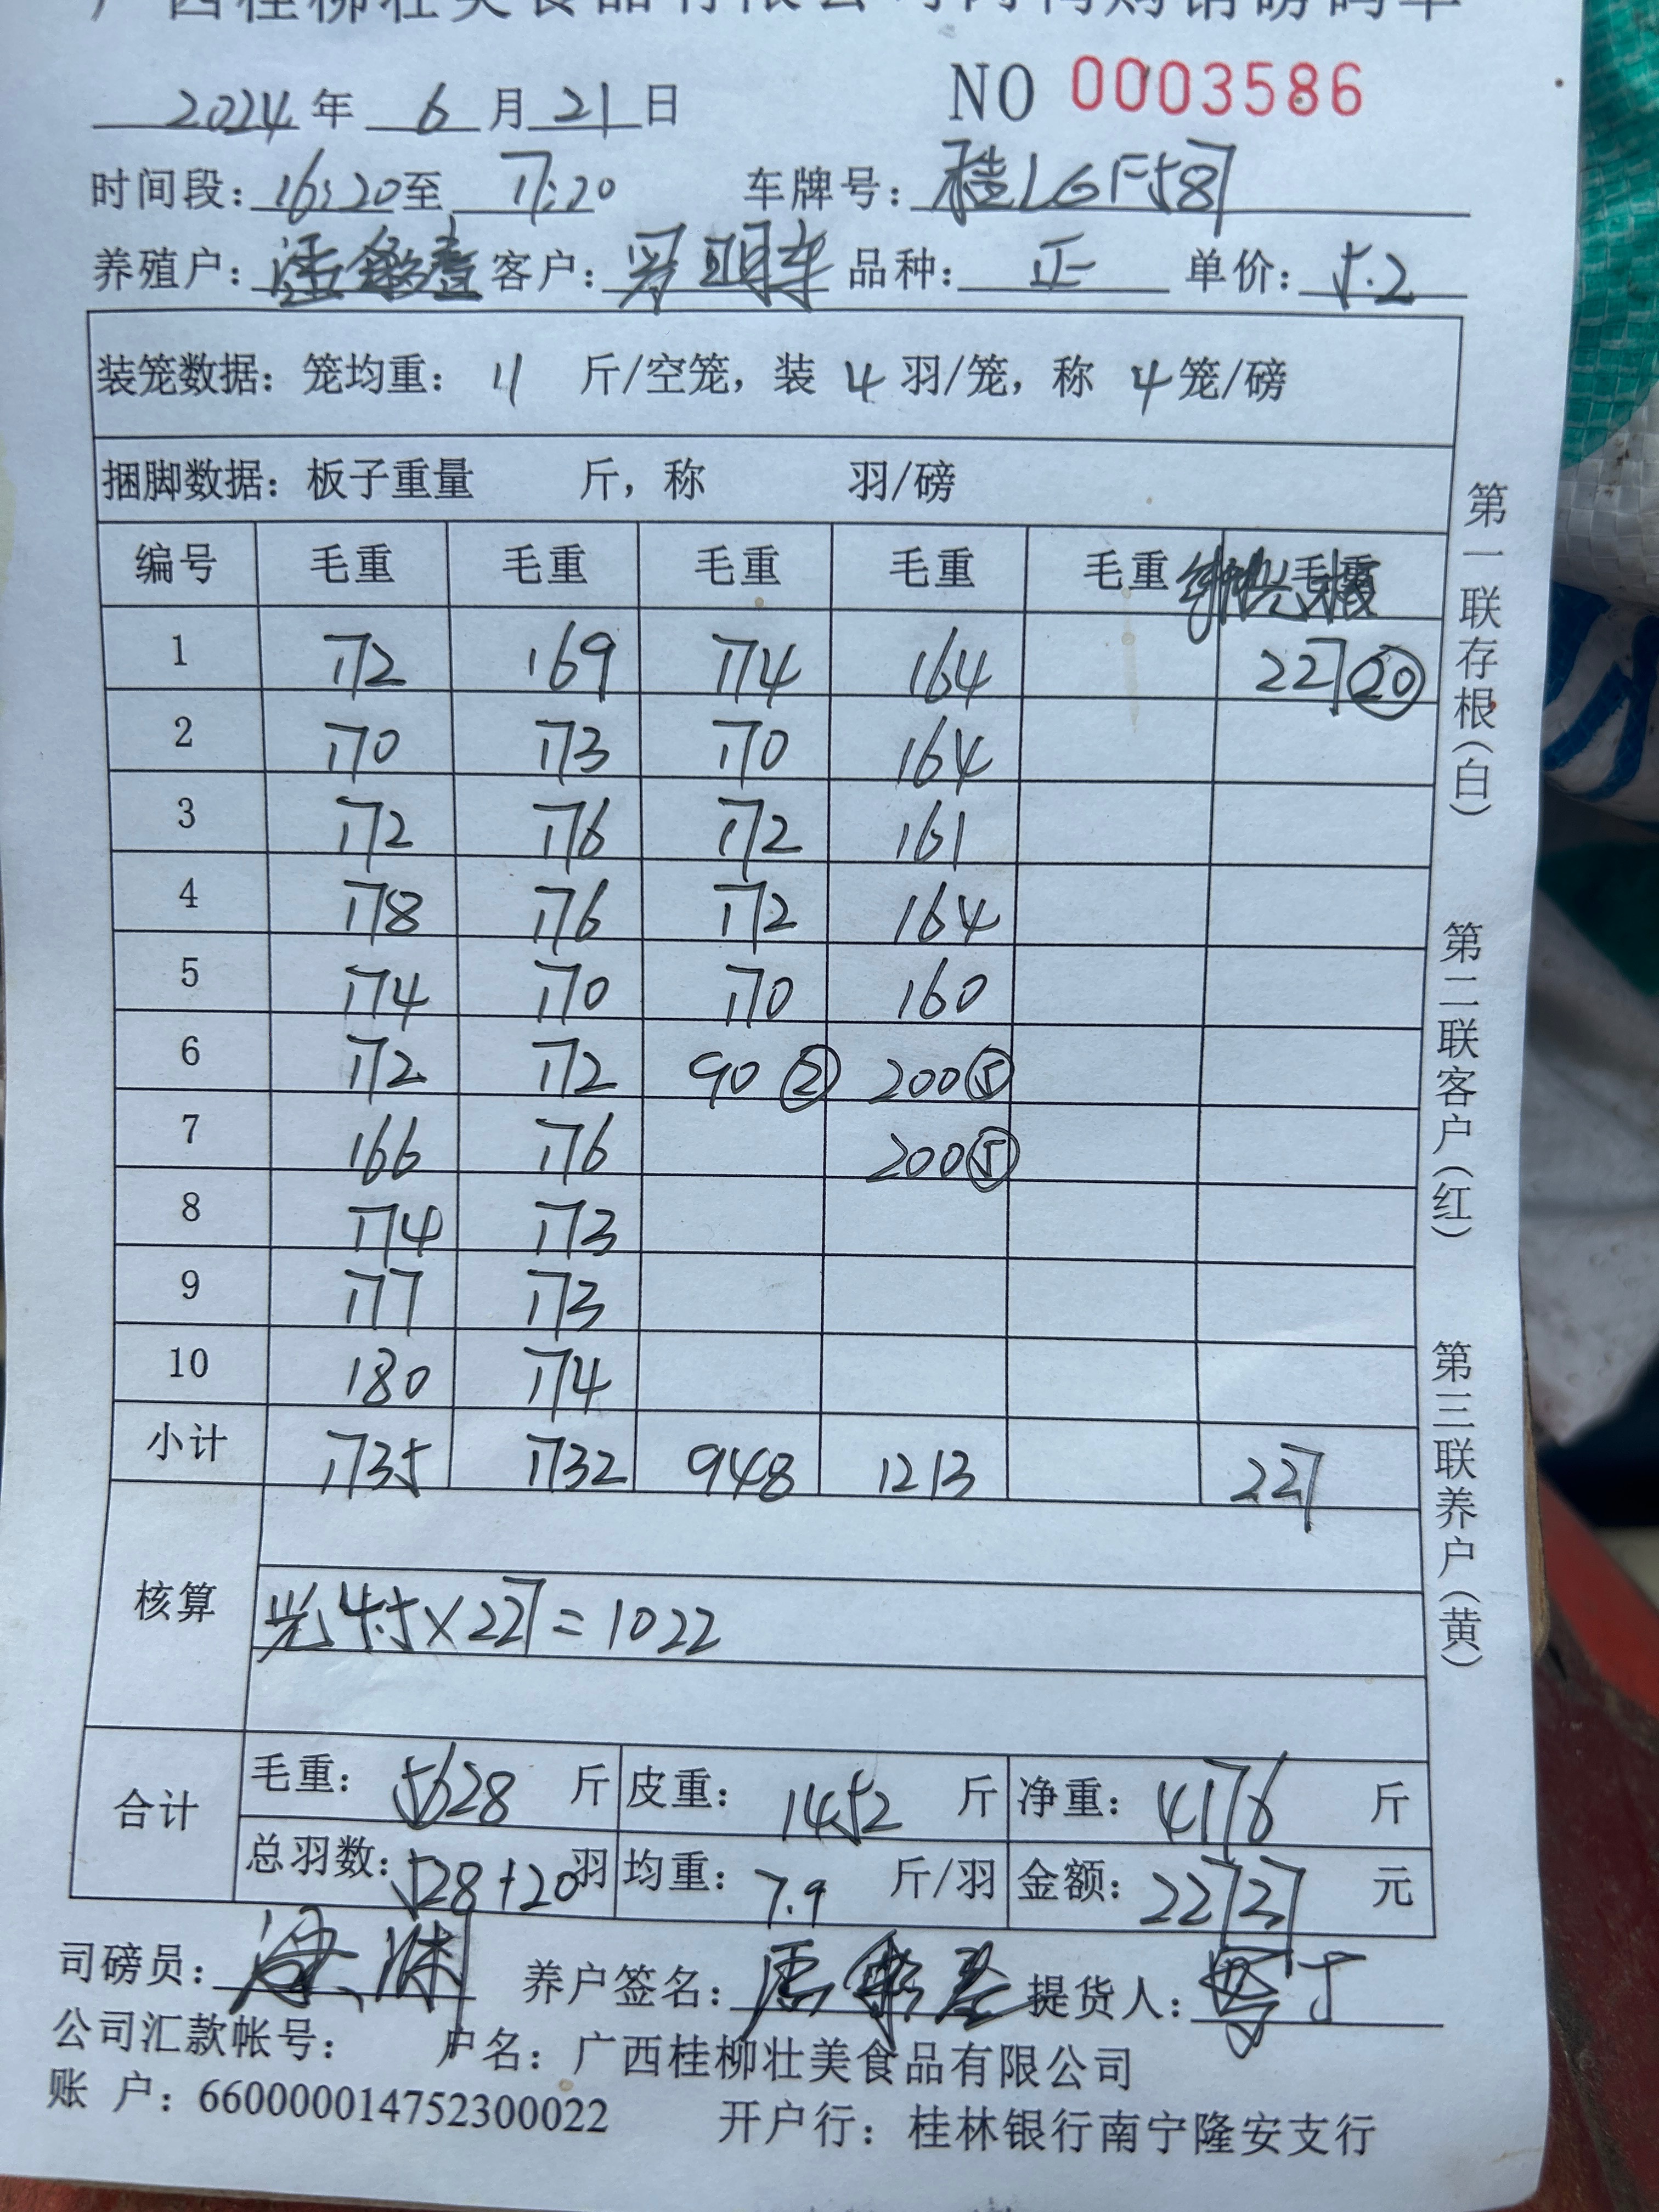 广西桂柳壮美食品有限公司
2024年 6月21日 NO 0003586
时间段：16:20至 17:20 车牌号：桂LGF587
养殖户： 客户： 品种：正 单价：5.2
装笼数据：笼均重：11 斤/空笼，装 4 羽/笼，称 4笼/磅
捆脚数据：板子重量 斤，称 羽/磅
编号 毛重 毛重 毛重 毛重 毛重 毛重
1 172 169 174 164 227 20
2 170 173 170 164
3 172 176 172 161
4 178 176 172 164
5 174 170 170 160
6 172 172 90 2 200 5
7 166 176 200 5
8 174 173
9 177 173
10 180 174
小计 1735 1732 948 1213 227
核算
光 4.5×227=1022
合计
毛重：5628 斤 皮重：1452 斤 净重：4176 斤
总羽数：528+20羽 均重：7.9 斤/羽 金额：22737 元
司磅员： 养户签名： 提货人：
公司汇款帐号： 户名：广西桂柳壮美食品有限公司
账 户：660000014752300022 开户行：桂林银行南宁隆安支行
第一联存根（白） 第二联客户（红） 第三联养户（黄）